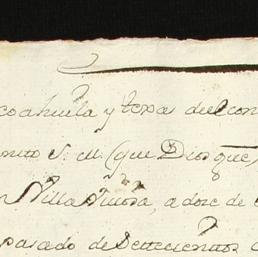 coahuila y texas del con
S. M. (que Dios gue)
Villa Nueva, a doze de
pasado de Setecientos